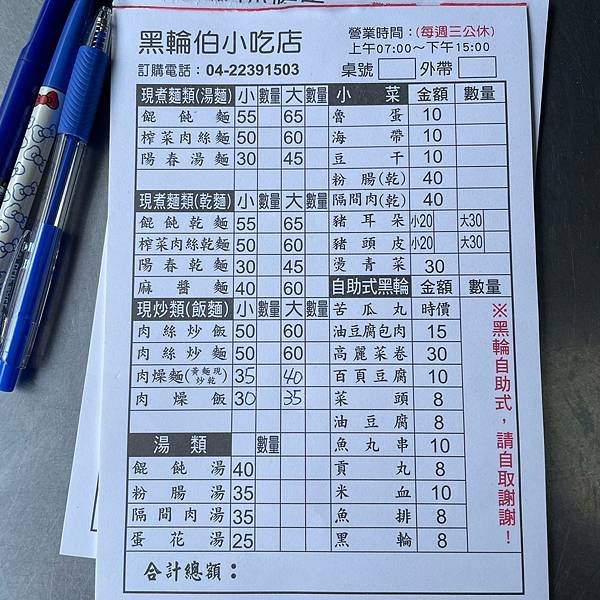 黑輪伯小吃店
訂購電話：04-22391503
營業時間：(每週三公休)
上午07:00～下午15:00
桌號 外帶
現煮麵類(湯麵) 小 數量 大 數量
餛飩麵 55 65
榨菜肉絲麵 50 60
陽春湯麵 30 45
現煮麵類(乾麵) 小 數量 大 數量
餛飩乾麵 55 65
榨菜肉絲乾麵 50 60
陽春乾麵 30 45
麻醬麵 40 60
現炒類(飯麵) 小 數量 大 數量
肉絲炒飯 50 60
肉絲炒麵 50 60
肉燥麵(黃麵現炒乾) 35 40
肉燥飯 30 35
湯類 數量
餛飩湯 40
粉腸湯 35
隔間肉湯 35
蛋花湯 25
合計總額：
小菜 金額 數量
魯蛋 10
海帶 10
豆干 10
粉腸(乾) 40
隔間肉(乾) 40
豬耳朵 小20 大30
豬頭皮 小20 大30
燙青菜 30
自助式黑輪 金額 數量
苦瓜丸 時價
油豆腐包肉 15
高麗菜卷 30
百頁豆腐 10
菜頭 8
油豆腐 8
魚丸串 10
貢丸 8
米血 10
魚排 8
黑輪 8
※黑輪自助式，請自取謝謝！